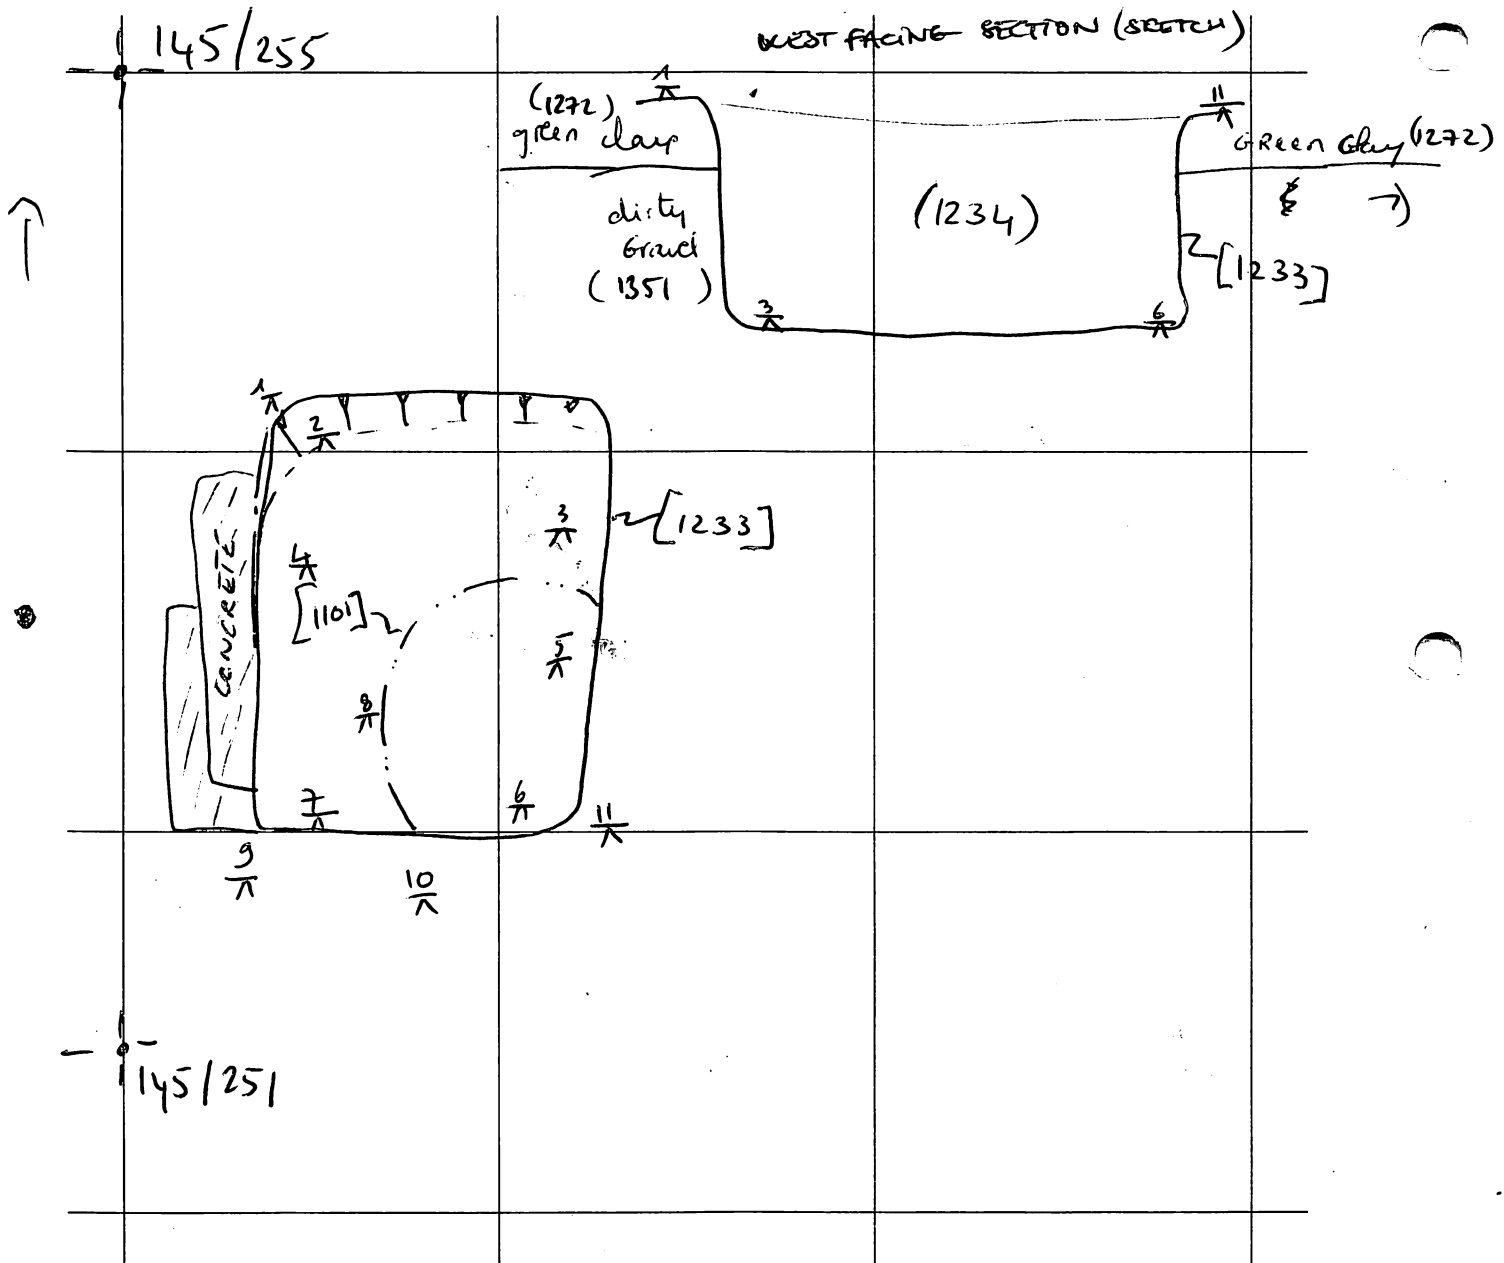 145/255
WEST FACING SECTION (SKETCH)
1
11
(1272)
green clay
GREEN Clay (1272)
(1234)
dirty
Gravel
(1351)
[1233]
3
6
1
2
3
[1233]
4
CONCRETE
[1101]
5
8
7
6
11
9
10
145/251